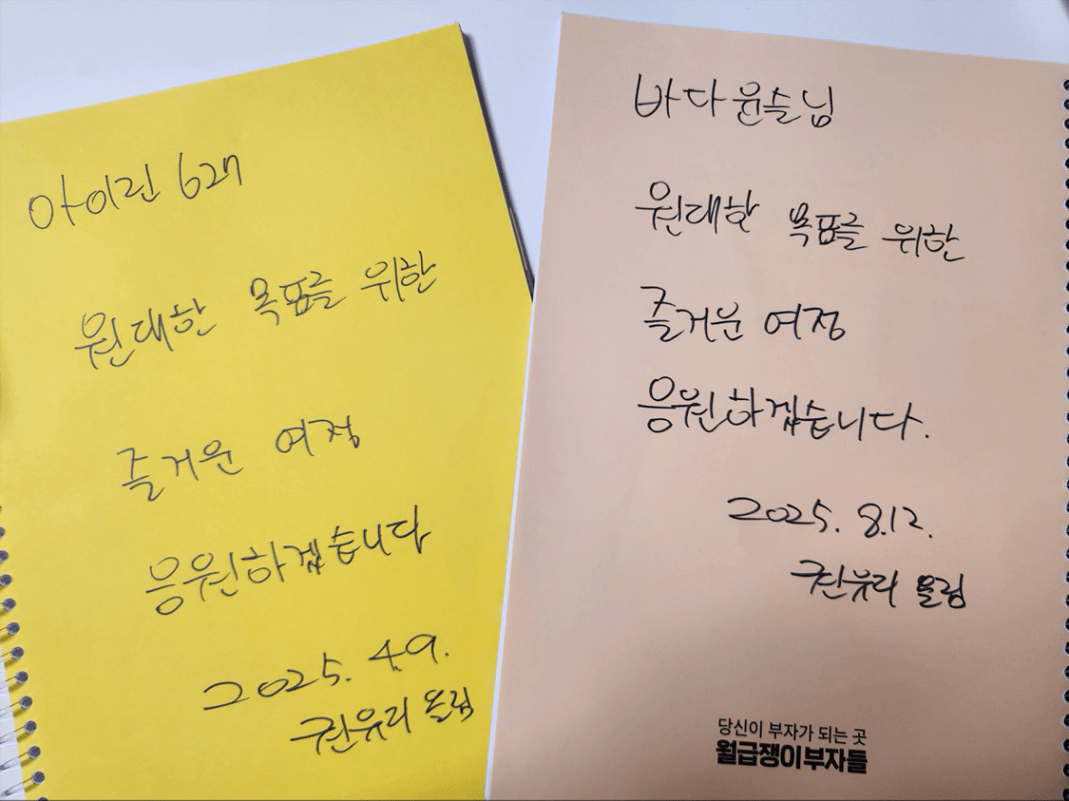 아이린 6애
원대한 목표를 위한
즐거운 여정
응원하겠습니다
2025. 4.9.
권유리 올림
바다윤슬님
원대한 목표를 위한
즐거운 여정
응원하겠습니다.
2025. 8.12.
권유리 올림
당신이 부자가 되는 곳
월급쟁이부자들